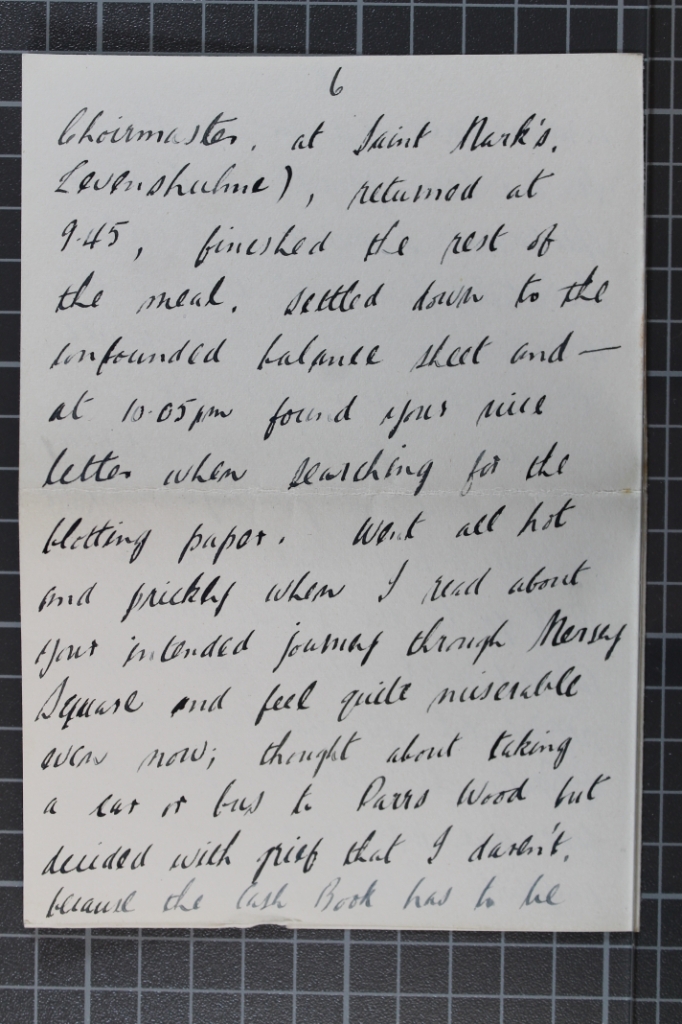 6
Choirmaster, at Saint Mark's,
Levenshulme), returned at
9.45, finished the rest of
the meal, settled down to the
confounded balance sheet and —
at 10.05pm found your nice
letter when searching for the
blotting paper. Went all hot
and prickly when I read about
your intended journey through Mersey
Square and feel quite miserable
even now; thought about taking
a car or bus to Parrs Wood but
decided with grief that I daren't,
because the Cash Book has to be